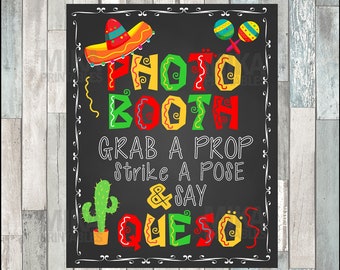 PHOTO
BOOTH
GRAB A PROP
strike A POSE
& SAY
QUESO